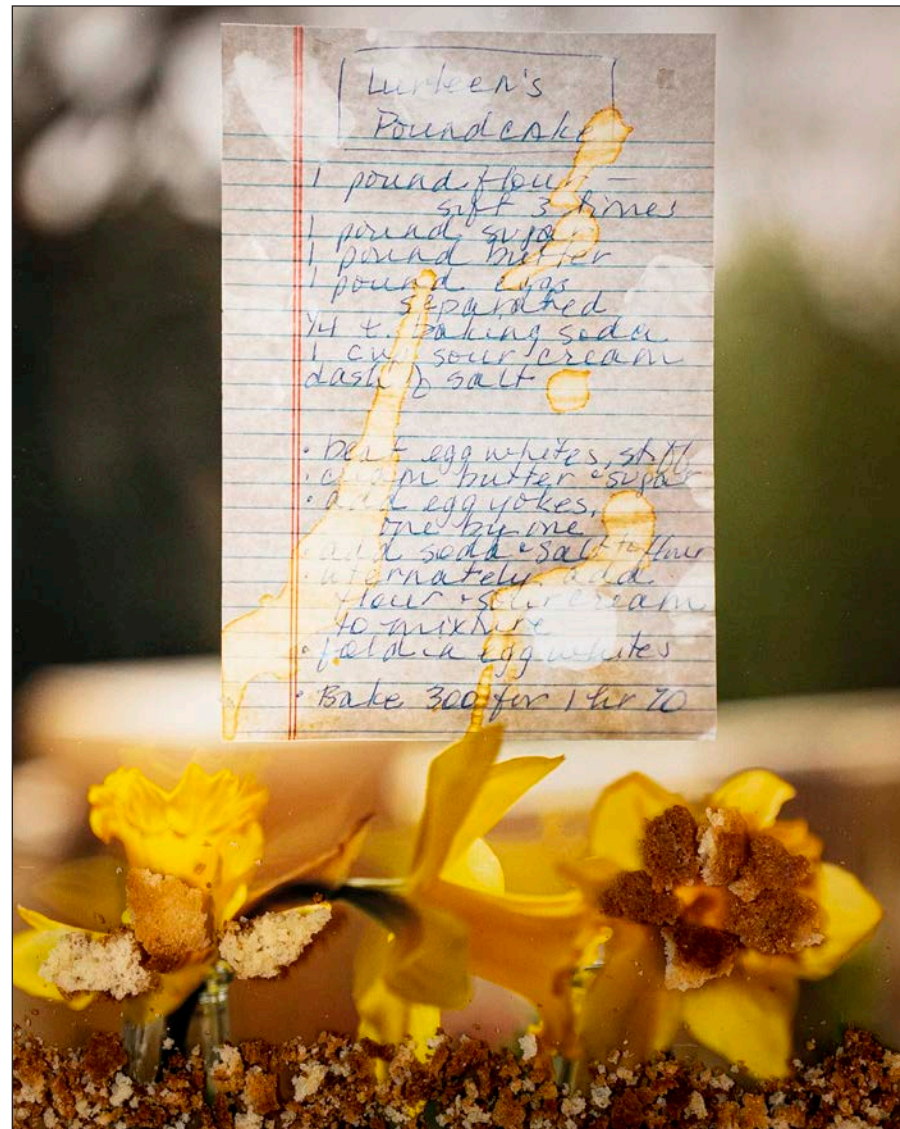 Lurleen's
Poundcake
1 pound flour -
sift 3 times
1 pound sugar
1 pound butter
1 pound eggs
separated
1/4 t. baking soda
1 cup sour cream
dash of salt
• beat egg whites, stiff
• cream butter & sugar
• add egg yokes,
one by one
• add soda & salt to flour
• alternately add
flour + sour cream
to mixture
• fold in egg whites
• Bake 300 for 1 hr 20